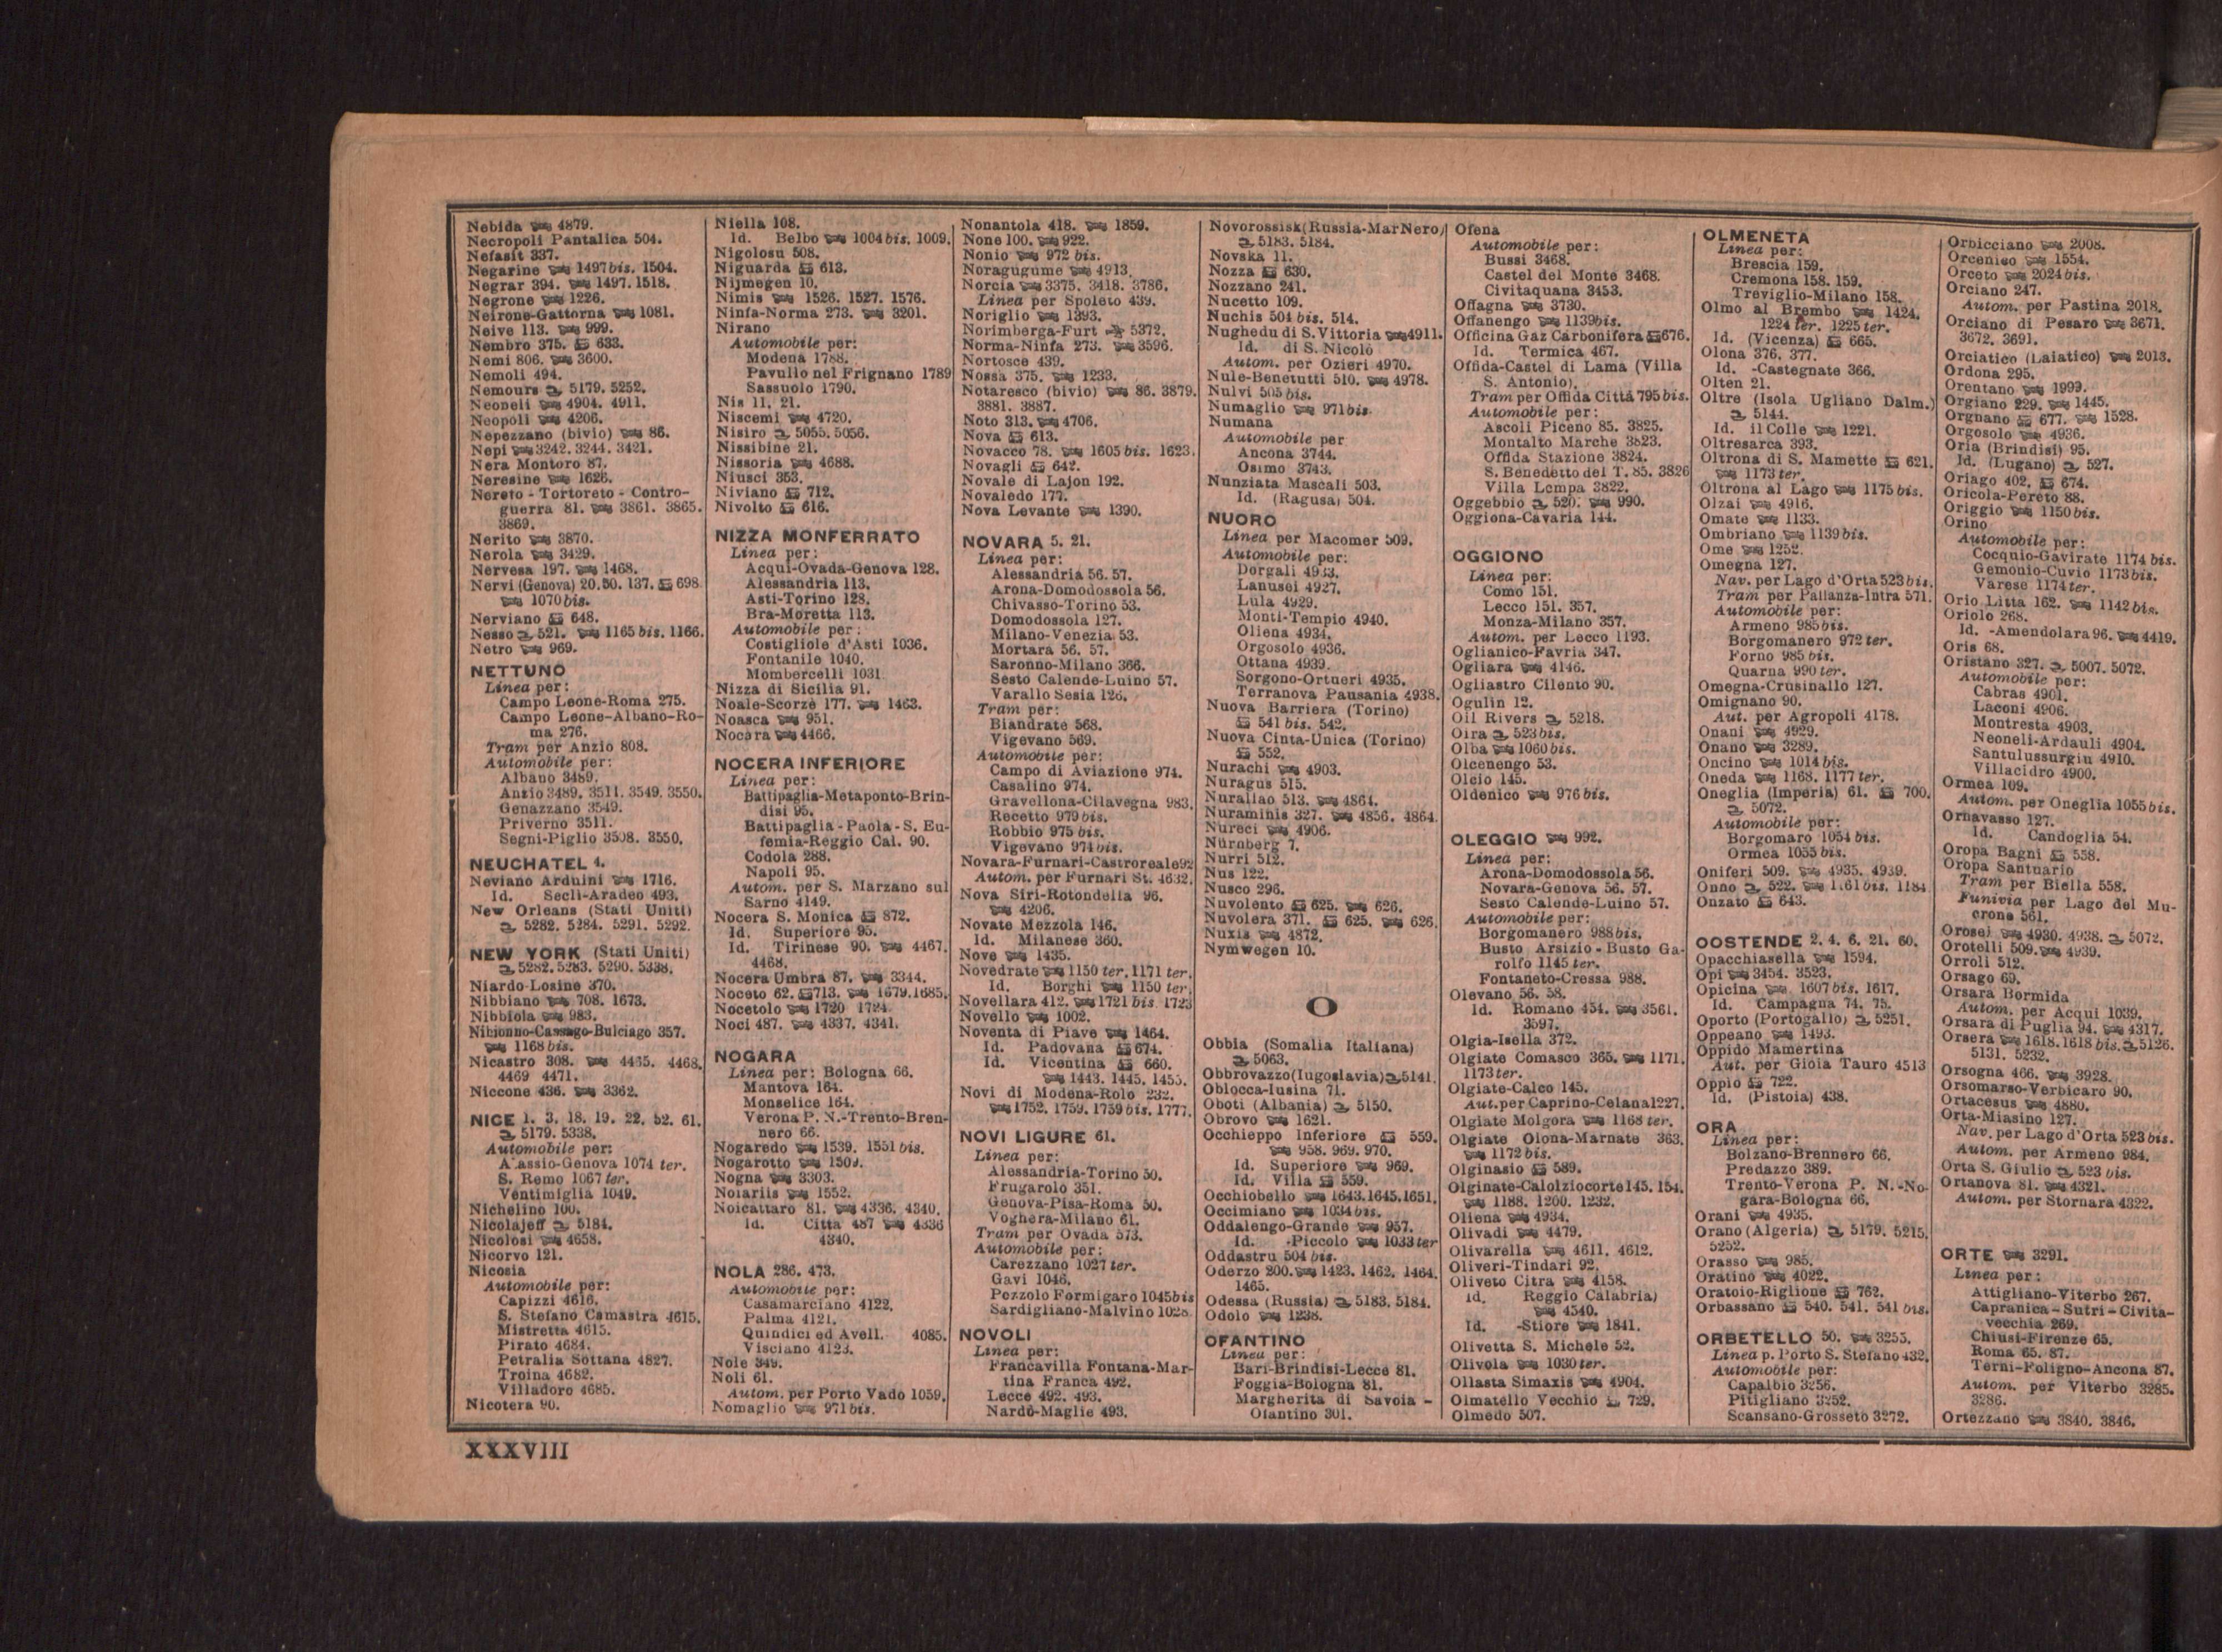 Nebida 4879.
Necropoli Pantalica 504.
Nefasit 337.
Negarine 1497 bis. 1504.
Negrar 394. 1497. 1518.
Negrone 1226.
Neirone-Gattorna 1081.
Neive 113. 999.
Nembro 375. 633.
Nemi 806. 3600.
Nemoli 494.
Nemours 5179. 5252.
Neoneli 4904. 4911.
Neopoli 4206.
Nepezzano (bivio) 86.
Nepi 3242. 3244. 3421.
Nera Montoro 87.
Neresine 1626.
Nereto - Tortoreto - Contro-
guerra 81. 3861. 3865.
3869.
Nerito 3870.
Nerola 3429.
Nervesa 197. 1468.
Nervi (Genova) 20. 50. 137. 698
1070 bis.
Nerviano 648.
Nesso 521. 1165 bis. 1166.
Netro 969.
NETTUNO
Linea per:
Campo Leone-Roma 275.
Campo Leone-Albano-Ro-
ma 276.
Tram per Anzio 808.
Automobile per:
Albano 3489.
Anzio 3489. 3511. 3549. 3550.
Genazzano 3549.
Priverno 3511.
Segni-Piglio 3508. 3550.
NEUCHATEL 4.
Neviano Arduini 1716.
Id. Secli-Aradeo 493.
New Orleans (Stati Uniti)
5282. 5284. 5291. 5292.
NEW YORK (Stati Uniti)
5282. 5283. 5290. 5338.
Niardo-Losine 370.
Nibbiano 708. 1673.
Nibbiola 983.
Nibionno-Cassago-Bulciago 357.
1168 bis.
Nicastro 308. 4465. 4468.
4469 4471.
Niccone 436. 3362.
NICE 1. 3. 18. 19. 22. 52. 61.
5179. 5338.
Automobile per:
Alassio-Genova 1074 ter.
S. Remo 1067 ter.
Ventimiglia 1049.
Nichelino 100.
Nicolajeff 5184.
Nicolosi 4658.
Nicorvo 121.
Nicosia
Automobile per:
Capizzi 4616.
S. Stefano Camastra 4615.
Mistretta 4615.
Pirato 4684.
Petralia Sottana 4827.
Troina 4682.
Villadoro 4685.
Nicotera 90.
Niella 108.
Id. Belbo 1004 bis. 1009.
Nigolosu 508.
Niguarda 613.
Nijmegen 10.
Nimis 1526. 1527. 1576.
Ninfa-Norma 273. 3201.
Nirano
Automobile per:
Modena 1788.
Pavullo nel Frignano 1789
Sassuolo 1790.
Nis 11. 21.
Niscemi 4720.
Nisiro 5055. 5056.
Nissibine 21.
Nissoria 4688.
Niusci 353.
Niviano 712.
Nivolto 616.
NIZZA MONFERRATO
Linea per:
Acqui-Ovada-Genova 128.
Alessandria 113.
Asti-Torino 128.
Bra-Moretta 113.
Automobile per:
Costigliole d'Asti 1036.
Fontanile 1040.
Mombercelli 1031.
Nizza di Sicilia 91.
Noale-Scorzè 177. 1463.
Noasca 951.
Nocara 4466.
NOCERA INFERIORE
Linea per:
Battipaglia-Metaponto-Brin-
disi 95.
Battipaglia - Paola - S. Eu-
femia-Reggio Cal. 90.
Codola 288.
Napoli 95.
Autom. per S. Marzano sul
Sarno 4149.
Nocera S. Monica 872.
Id. Superiore 95.
Id. Tirinese 90. 4467.
4468.
Nocera Umbra 87. 3344.
Noceto 62. 713. 1679. 1685.
Nocetolo 1720 1724
Noci 487. 4337. 4341.
NOGARA
Linea per: Bologna 66.
Mantova 164.
Monselice 164.
Verona P. N.-Trento-Bren-
nero 66.
Nogaredo 1539. 1551 bis.
Nogarotto 1509.
Nogna 3303.
Noiariis 1552.
Noicattaro 81. 4336. 4340.
Id. Città 487 4336
4340.
NOLA 286. 473.
Automobile per:
Casamarciano 4122.
Palma 4121.
Quindici ed Avell. 4085.
Visciano 4123.
Nole 349.
Noli 61.
Autom. per Porto Vado 1059.
Nomaglio 971 bis.
Nonantola 418. 1859.
None 100. 922.
Nonio 972 bis.
Noragugume 4913.
Norcia 3375. 3418. 3786.
Linea per Spoleto 439.
Noriglio 1393.
Norimberga-Furt 5372.
Norma-Ninfa 273. 3596.
Nortosce 439.
Nossa 375. 1233.
Notaresco (bivio) 86. 3879.
3881. 3887.
Noto 313. 4706.
Nova 613.
Novacco 78. 1605 bis. 1623.
Novagli 642.
Novale di Lajon 192.
Novaledo 177.
Nova Levante 1390.
NOVARA 5. 21.
Linea per:
Alessandria 56. 57.
Arona-Domodossola 56.
Chivasso-Torino 53.
Domodossola 127.
Milano-Venezia 53.
Mortara 56. 57.
Saronno-Milano 366.
Sesto Calende-Luino 57.
Varallo Sesia 126.
Tram per:
Biandrate 568.
Vigevano 569.
Automobile per:
Campo di Aviazione 974.
Casalino 974.
Gravellona-Cilavegna 983.
Recetto 979 bis.
Robbio 975 bis.
Vigevano 974 bis.
Novara-Furnari-Castroreale 92
Autom. per Furnari St. 4632.
Nova Siri-Rotondella 96.
4206.
Novate Mezzola 146.
Id. Milanese 360.
Nove 1435.
Novedrate 1150 ter. 1171 ter.
Id. Borghi 1150 ter.
Novellara 412. 1721 bis 1723
Novello 1002.
Noventa di Piave 1464.
Id. Padovana 674.
Id. Vicentina 660.
1443. 1445. 1455.
Novi di Modena-Rolo 232.
1752. 1759. 1759 bis. 1777.
NOVI LIGURE 61.
Linea per:
Alessandria-Torino 50.
Frugarolo 351.
Genova-Pisa-Roma 50.
Voghera-Milano 61.
Tram per Ovada 573.
Automobile per:
Carezzano 1027 ter.
Gavi 1046.
Pozzolo Formigaro 1045 bis
Sardigliano-Malvino 1028
NOVOLI
Linea per:
Francavilla Fontana-Mar-
tina Franca 492.
Lecce 492. 493.
Nardò-Maglie 493.
Novorossisk (Russia-Mar Nero)
5183. 5184.
Novska 11.
Nozza 630.
Nozzano 241.
Nucetto 109.
Nuchis 504 bis. 514.
Nughedu di S. Vittoria 4911.
Id. di S. Nicolò
Autom. per Ozieri 4970.
Nule-Benetutti 510. 4978.
Nulvi 505 bis.
Numaglio 971 bis.
Numana
Automobile per
Ancona 3744.
Osimo 3743.
Nunziata Mascali 503.
Id. (Ragusa) 504.
NUORO
Linea per Macomer 509.
Automobile per:
Dorgali 4933.
Lanusei 4927.
Lula 4929.
Monti-Tempio 4940.
Oliena 4934.
Orgosolo 4936.
Ottana 4939.
Sorgono-Ortueri 4935.
Terranova Pausania 4938.
Nuova Barriera (Torino)
541 bis. 542.
Nuova Cinta-Unica (Torino)
552.
Nurachi 4903.
Nuragus 515.
Nurallao 513. 4864.
Nuraminis 327. 4856. 4864.
Nureci 4906.
Nürnberg 7.
Nurri 512.
Nus 122.
Nusco 296.
Nuvolento 625. 626.
Nuvolera 371. 625. 626.
Nuxis 4872.
Nymwegen 10.
O
Obbia (Somalia Italiana)
5063.
Obbrovazzo (Iugoslavia) 5141.
Oblocca-Iusina 71.
Oboti (Albania) 5150.
Obrovo 1621.
Occhieppo Inferiore 559.
958. 969. 970.
Id. Superiore 969.
Id. Villa 559.
Occhiobello 1643. 1645. 1651.
Occimiano 1034 bis.
Oddalengo-Grande 957.
Id. -Piccolo 1033 ter
Oddastru 504 bis.
Oderzo 200. 1423. 1462. 1464.
1465.
Odessa (Russia) 5183. 5184.
Odolo 1238.
OFANTINO
Linea per:
Bari-Brindisi-Lecce 81.
Foggia-Bologna 81.
Margherita di Savoia -
Ofantino 301.
Ofena
Automobile per:
Bussi 3468.
Castel del Monte 3468.
Civitaquana 3453.
Offagna 3730.
Offanengo 1139 bis.
Officina Gaz Carbonifera 676.
Id. Termica 467.
Offida-Castel di Lama (Villa
S. Antonio).
Tram per Offida Città 795 bis.
Automobile per:
Ascoli Piceno 85. 3825.
Montalto Marche 3823.
Offida Stazione 3824.
S. Benedetto del T. 85. 3826
Villa Lempa 3822.
Oggebbio 520. 990.
Oggiona-Cavaria 144.
OGGIONO
Linea per:
Como 151.
Lecco 151. 357.
Monza-Milano 357.
Autom. per Lecco 1193.
Oglianico-Favria 347.
Ogliara 4146.
Ogliastro Cilento 90.
Ogulin 12.
Oil Rivers 5218.
Oira 523 bis.
Olba 1060 bis.
Olcenengo 53.
Olcio 145.
Oldenico 976 bis.
OLEGGIO 992.
Linea per:
Arona-Domodossola 56.
Novara-Genova 56. 57.
Sesto Calende-Luino 57.
Automobile per:
Borgomanero 988 bis.
Busto Arsizio - Busto Ga-
rolfo 1145 ter.
Fontaneto-Cressa 988.
Olevano 56. 58.
Id. Romano 454. 3561.
3597.
Olgia-Isella 372.
Olgiate Comasco 365. 1171.
1173 ter.
Olgiate-Calco 145.
Aut. per Caprino-Celana 1227.
Olgiate Molgora 1168 ter.
Olgiate Olona-Marnate 363.
1172 bis.
Olginasio 589.
Olginate-Calolziocorte 145. 154.
1188. 1200. 1232.
Oliena 4934.
Olivadi 4479.
Olivarella 4611. 4612.
Oliveri-Tindari 92.
Oliveto Citra 4158.
Id. Reggio Calabria)
4540.
Id. -Stiore 1841.
Olivetta S. Michele 52.
Olivola 1030 ter.
Ollasta Simaxis 4904.
Olmatello Vecchio 729.
Olmedo 507.
OLMENETA
Linea per:
Brescia 159.
Cremona 158. 159.
Treviglio-Milano 158.
Olmo al Brembo 1424.
1224 ter. 1225 ter.
Id. (Vicenza) 665.
Olona 376. 377.
Id. -Castegnate 366.
Olten 21.
Oltre (Isola Ugliano Dalm.)
5144.
Id. il Colle 1221.
Oltresarca 393.
Oltrona di S. Mamette 621.
1173 ter.
Oltrona al Lago 1175 bis.
Olzai 4916.
Omate 1133.
Ombriano 1139 bis.
Ome 1252.
Omegna 127.
Nav. per Lago d'Orta 523 bis.
Tram per Pallanza-Intra 571.
Automobile per:
Armeno 985 bis.
Borgomanero 972 ter.
Forno 985 bis.
Quarna 990 ter.
Omegna-Crusinallo 127.
Omignano 90.
Aut. per Agropoli 4178.
Onani 4929.
Onano 3289.
Oncino 1014 bis.
Oneda 1168. 1177 ter.
Oneglia (Imperia) 61. 700.
5072.
Automobile per:
Borgomaro 1054 bis.
Ormea 1055 bis.
Oniferi 509. 4935. 4939.
Onno 522. 1161 bis. 1184
Onzato 643.
OOSTENDE 2. 4. 6. 21. 60.
Opacchiasella 1594.
Opi 3454. 3523.
Opicina 1607 bis. 1617.
Id. Campagna 74. 75.
Oporto (Portogallo) 5251.
Oppeano 1493.
Oppido Mamertina
Aut. per Gioia Tauro 4513
Oppio 722.
Id. (Pistoia) 438.
ORA
Linea per:
Bolzano-Brennero 66.
Predazzo 389.
Trento-Verona P. N.-No-
gara-Bologna 66.
Orani 4935.
Orano (Algeria) 5179. 5215.
5252.
Orasso 985.
Oratino 4022.
Oratoio-Riglione 762.
Orbassano 540. 541. 541 bis.
ORBETELLO 50. 3255.
Linea p. Porto S. Stefano 432.
Automobile per:
Capalbio 3256.
Pitigliano 3252.
Scansano-Grosseto 3272.
Orbicciano 2008.
Orcenico 1554.
Orceto 2024 bis.
Orciano 247.
Autom. per Pastina 2018.
Orciano di Pesaro 3671.
3672. 3691.
Orciatico (Laiatico) 2013.
Ordona 295.
Orentano 1999.
Orgiano 229. 1445.
Orgnano 677. 1528.
Orgosolo 4936.
Oria (Brindisi) 95.
Id. (Lugano) 527.
Oriago 402. 674.
Oricola-Pereto 88.
Origgio 1150 bis.
Orino
Automobile per:
Cocquio-Gavirate 1174 bis.
Gemonio-Cuvio 1173 bis.
Varese 1174 ter.
Orio Litta 162. 1142 bis.
Oriolo 268.
Id. -Amendolara 96. 4419.
Oris 68.
Oristano 327. 5007. 5072.
Automobile per:
Cabras 4901.
Laconi 4906.
Montresta 4903.
Neoneli-Ardauli 4904.
Santulussurgiu 4910.
Villacidro 4900.
Ormea 109.
Autom. per Oneglia 1055 bis.
Ornavasso 127.
Id. Candoglia 54.
Oropa Bagni 558.
Oropa Santuario
Tram per Biella 558.
Funivia per Lago del Mu-
crone 561.
Orosei 4930. 4938. 5072.
Orotelli 509. 4939.
Orroli 512.
Orsago 69.
Orsara Bormida
Autom. per Acqui 1039.
Orsara di Puglia 94. 4317.
Orsera 1618. 1618 bis. 5126.
5131. 5232.
Orsogna 466. 3928.
Orsomarso-Verbicaro 90.
Ortacesus 4880.
Orta-Miasino 127.
Nav. per Lago d'Orta 523 bis.
Autom. per Armeno 984.
Orta S. Giulio 523 bis.
Ortanova 81. 4321.
Autom. per Stornara 4322.
ORTE 3291.
Linea per:
Attigliano-Viterbo 267.
Capranica - Sutri - Civita-
vecchia 269.
Chiusi-Firenze 65.
Roma 65. 87.
Terni-Foligno-Ancona 87.
Autom. per Viterbo 3285.
3286.
Ortezzano 3840. 3846.
XXXVIII